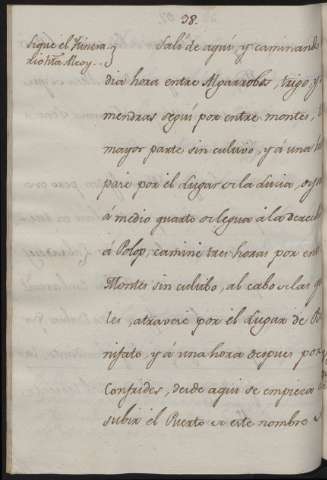 98.
Sigue el Itinera-
rio hta Alcoy..
Salí de aqui, y caminand
dia hora entre Algarrobs, trigo, y
mendras seguí por entre montes,
mayor parte sin cultivo, y á una
pase por el Lugar de la Nucia,
a medio quarto de legua á la derech
á Polop, caminé tres horas por ent
Montes sin cultibo, al cabo de las q
les, atravese por el Lugar de Be
nifato, y á una hora despues por
Confrides, desde aqui se empieza
subir el Puerto de este nombre